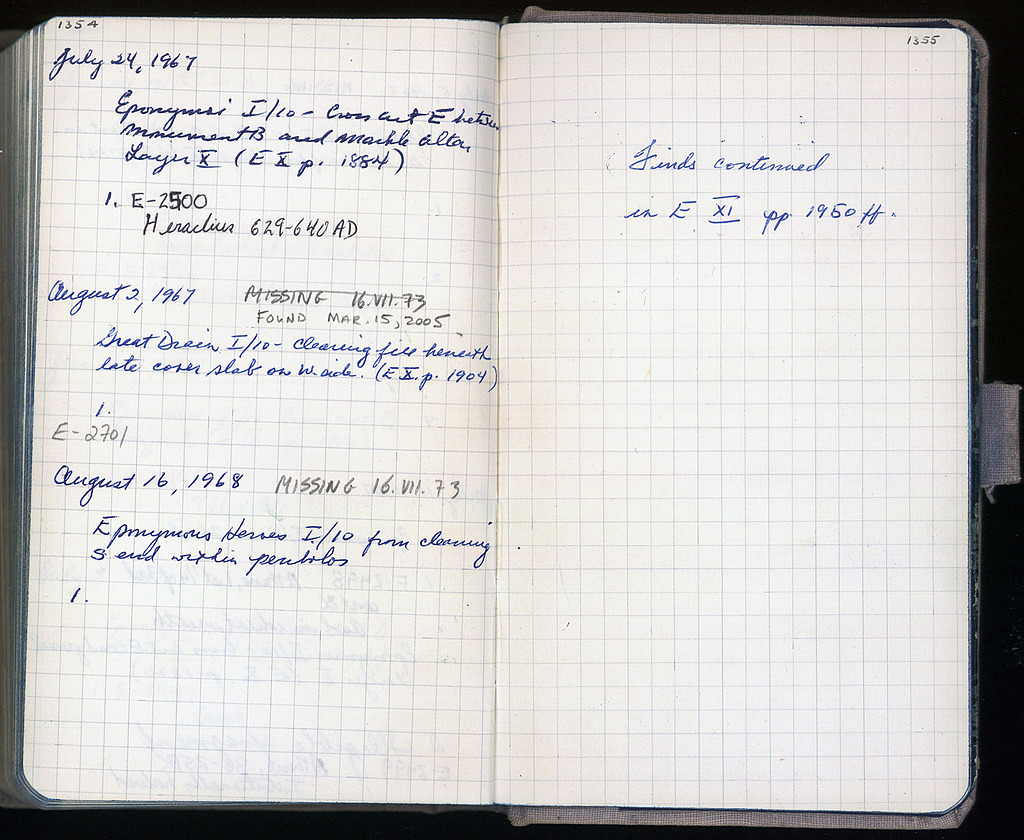 1354
July 24, 1967
Eponymoi I/10 - Cross cut E between
Monument B and Marble Altar
Layer X (E X p. 1884)
1. E-2500
Heraclius 629-640 AD
August 2, 1967 MISSING 16.VII.73
FOUND MAR. 15, 2005
Great Drain I/10 - clearing fill beneath
late cover slab on W. side. (E X. p. 1904)
1.
E-2701
August 16, 1968 MISSING 16.VII.73
Eponymous Heroes I/10 from cleaning
S end within peribolos
1.
1355
Finds continued
in E XI pp 1950 ff.